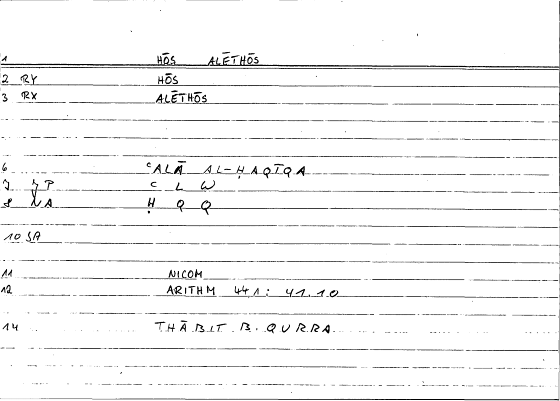 1 HŌS ALĒTHŌS
2 RY HŌS
3 RX ALĒTHŌS
6 ᶜALĀ AL-ḤAQĪQA
7 ȜP C L W
8 NA Ḥ Q Q
10 SA
11 NICOM
12 ARITHM 441: 41.10
14 THĀBIT B. QURRA